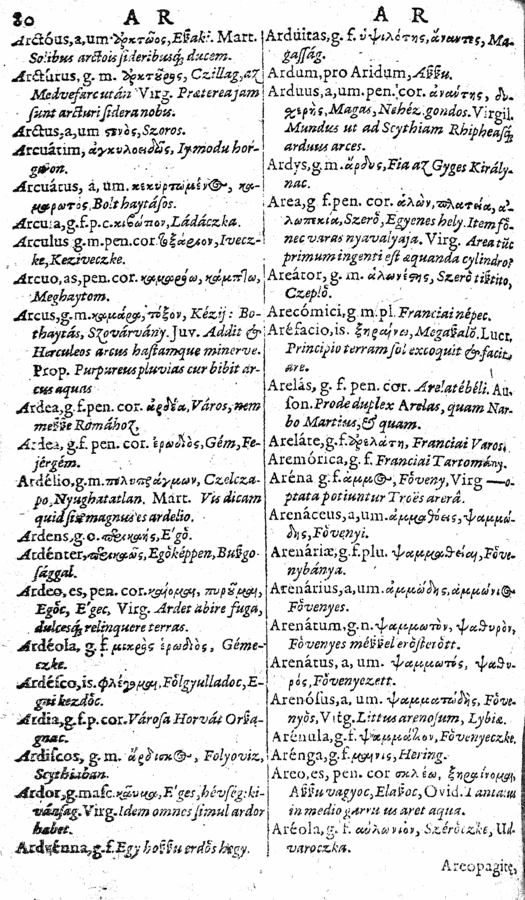 80 A R
Arctóus,a,um ἀρκτῶος, Eſʒaki. Mart.
Solibus arctois sideribusq́; ducem.
Arctúrus, g. m. ἀρκτῦρος, Czillag, aʒ
Medvefarc után Virg. Præterea jam
sunt arcturi sidera nobis.
Arctus,a,um ςενὸς, Szoros.
Arcuátim, ἀγκυλοειδῶς, Iv modu hor-
gaʃon.
Arcuátus, á, um. κεκυρτωμένος, κα-
μαρωτὸς, Bolt haytásos.
Arcula,g.f.p.c. κιβώτιον, Ládáczka.
Arculus g.m.pen.cor. Ivecz-
ke, Keziveczke.
Arcuo,as,pen.cor. καμαρόω, κάμπτω,
Meghaytom.
Arcus, g.m. καμάρα, τόξον, Kézij: Bo-
thaytás, Szovárvány. Juv. Addit &
Herculeos arcus hastamque minervę.
Prop. Purpureus pluvias cur bibit ar-
cus aquas
Ardea,g.f.pen. cor. ἀρδέα, Város, nem
meſſe Romához.
Ardea, g.f. pen. cor. ἐρωδιὸς, Gém, Fe-
jérgém.
Ardélio,g.m. πολυπράγμων, Czelcza-
po, Nyughatatlan. Mart. Vis dicam
quid sis? magnus es ardelio.
Ardens,g.o. Egô.
Ardénter, Egôképpen, Buʒgo-
sággal.
Ardeo,es, pen. cor. καίομαι, πυροῦμαι,
Egôc, E'gec. Virg. Ardet abire fuga,
dulcesq́; relinquere terras.
Ardéola, g. f. μικρὸς ἐρωδιὸς, Géme-
czke.
Ardésco,is. φλέγομαι, Fôlgyulladoc, E-
gni kezdôc.
Ardia,g.f.p.cor. Városa Horvát Orſʒa-
gnac.
Ardiscos, g. m. ἄρδισκος, Folyoviz,
Scythiaban.
Ardor,g.masc. καῦμα, E'ges, hévség: ki-
vánság. Virg. Idem omnes simul ardor
habet.
Arduénna,g.f. Egy hoſſʒu erdôs hegy.
A R
Ardúitas,g.f. ὑψιλότης, ἄναντες, Ma-
gasság.
Ardum,pro Aridum, Aſʒʒu.
Arduus,a,um.pen.cor. ἀνάντης, δυ-
χερὴς, Magas, Nehéz, gondos. Virgil.
Mundus ut ad Scythiam Rhipheasq́;
arduus arces.
Ardys,g.m. ἄρδυς, Fia aʒ Gyges Király-
nac.
Area,g f. pen. cor. ἅλων, πλατεῖα, ἀ-
λωπεκία, Szerô, Egyenes hely. Item fô-
nec varas nyavalyaja. Virg. Area tūc
primum ingenti est æquanda cylindro?
Areátor, g. m. Szerô tistito,
Czeplô.
Arecómici, g.m.pl. Franciai népec.
Aréfacio,is. ξηραίνω, Megaſʒalô. Lucr.
Principio terram sol excoquit & facit
are.
Arelás, g. f. pen. cor. Arelatébéli. Au-
son. Prode duplex Arelas, quam Nar-
bo Martius, & quam.
Areláte,g.f. ἀρελάτη, Franciai Varos.
Aremórica, g. f. Franciai Tartomány.
Aréna g.f. ἄμμος, Fôveny, Virg —o-
ptata potiuntur Troës arenâ.
Arenáceus,a,um. ἀμμαθόεις, ψαμμώ-
δης, Fôvenyi.
Arenáriæ,g.f.plu. ψαμμαθεῖαι, Fôve-
nybánya.
Arenárius,a,um. ἀμμώδης, ἀμμόνιος
Fôvenyes.
Arenátum, g.n. ψαμμωτὸν, ψαθυρὸν,
Fôvenyes méſſel erôstetôtt.
Arenátus,a, um. ψαμμωτός, ψαθυ-
ρός, Fôvenyezett.
Arenósus,a, um. ψαμματώδης, Fôve-
nyôs, Virg. Littus arenosum, Lybiæ.
Arénula, g.f. Fôvenyeczke.
Arénga,g.f. μαινις, Hering.
Areo,es, pen. cor σκλέω, ξηραίνομαι,
Aſʒʒu vagyoc, Elaſʒoc, Ovid. Tantalus
in medio garrulus aret aqua.
Aréola, g. f. αὐλωνίον, Szérôczke, Ud-
varoczka.
Areopagitę,